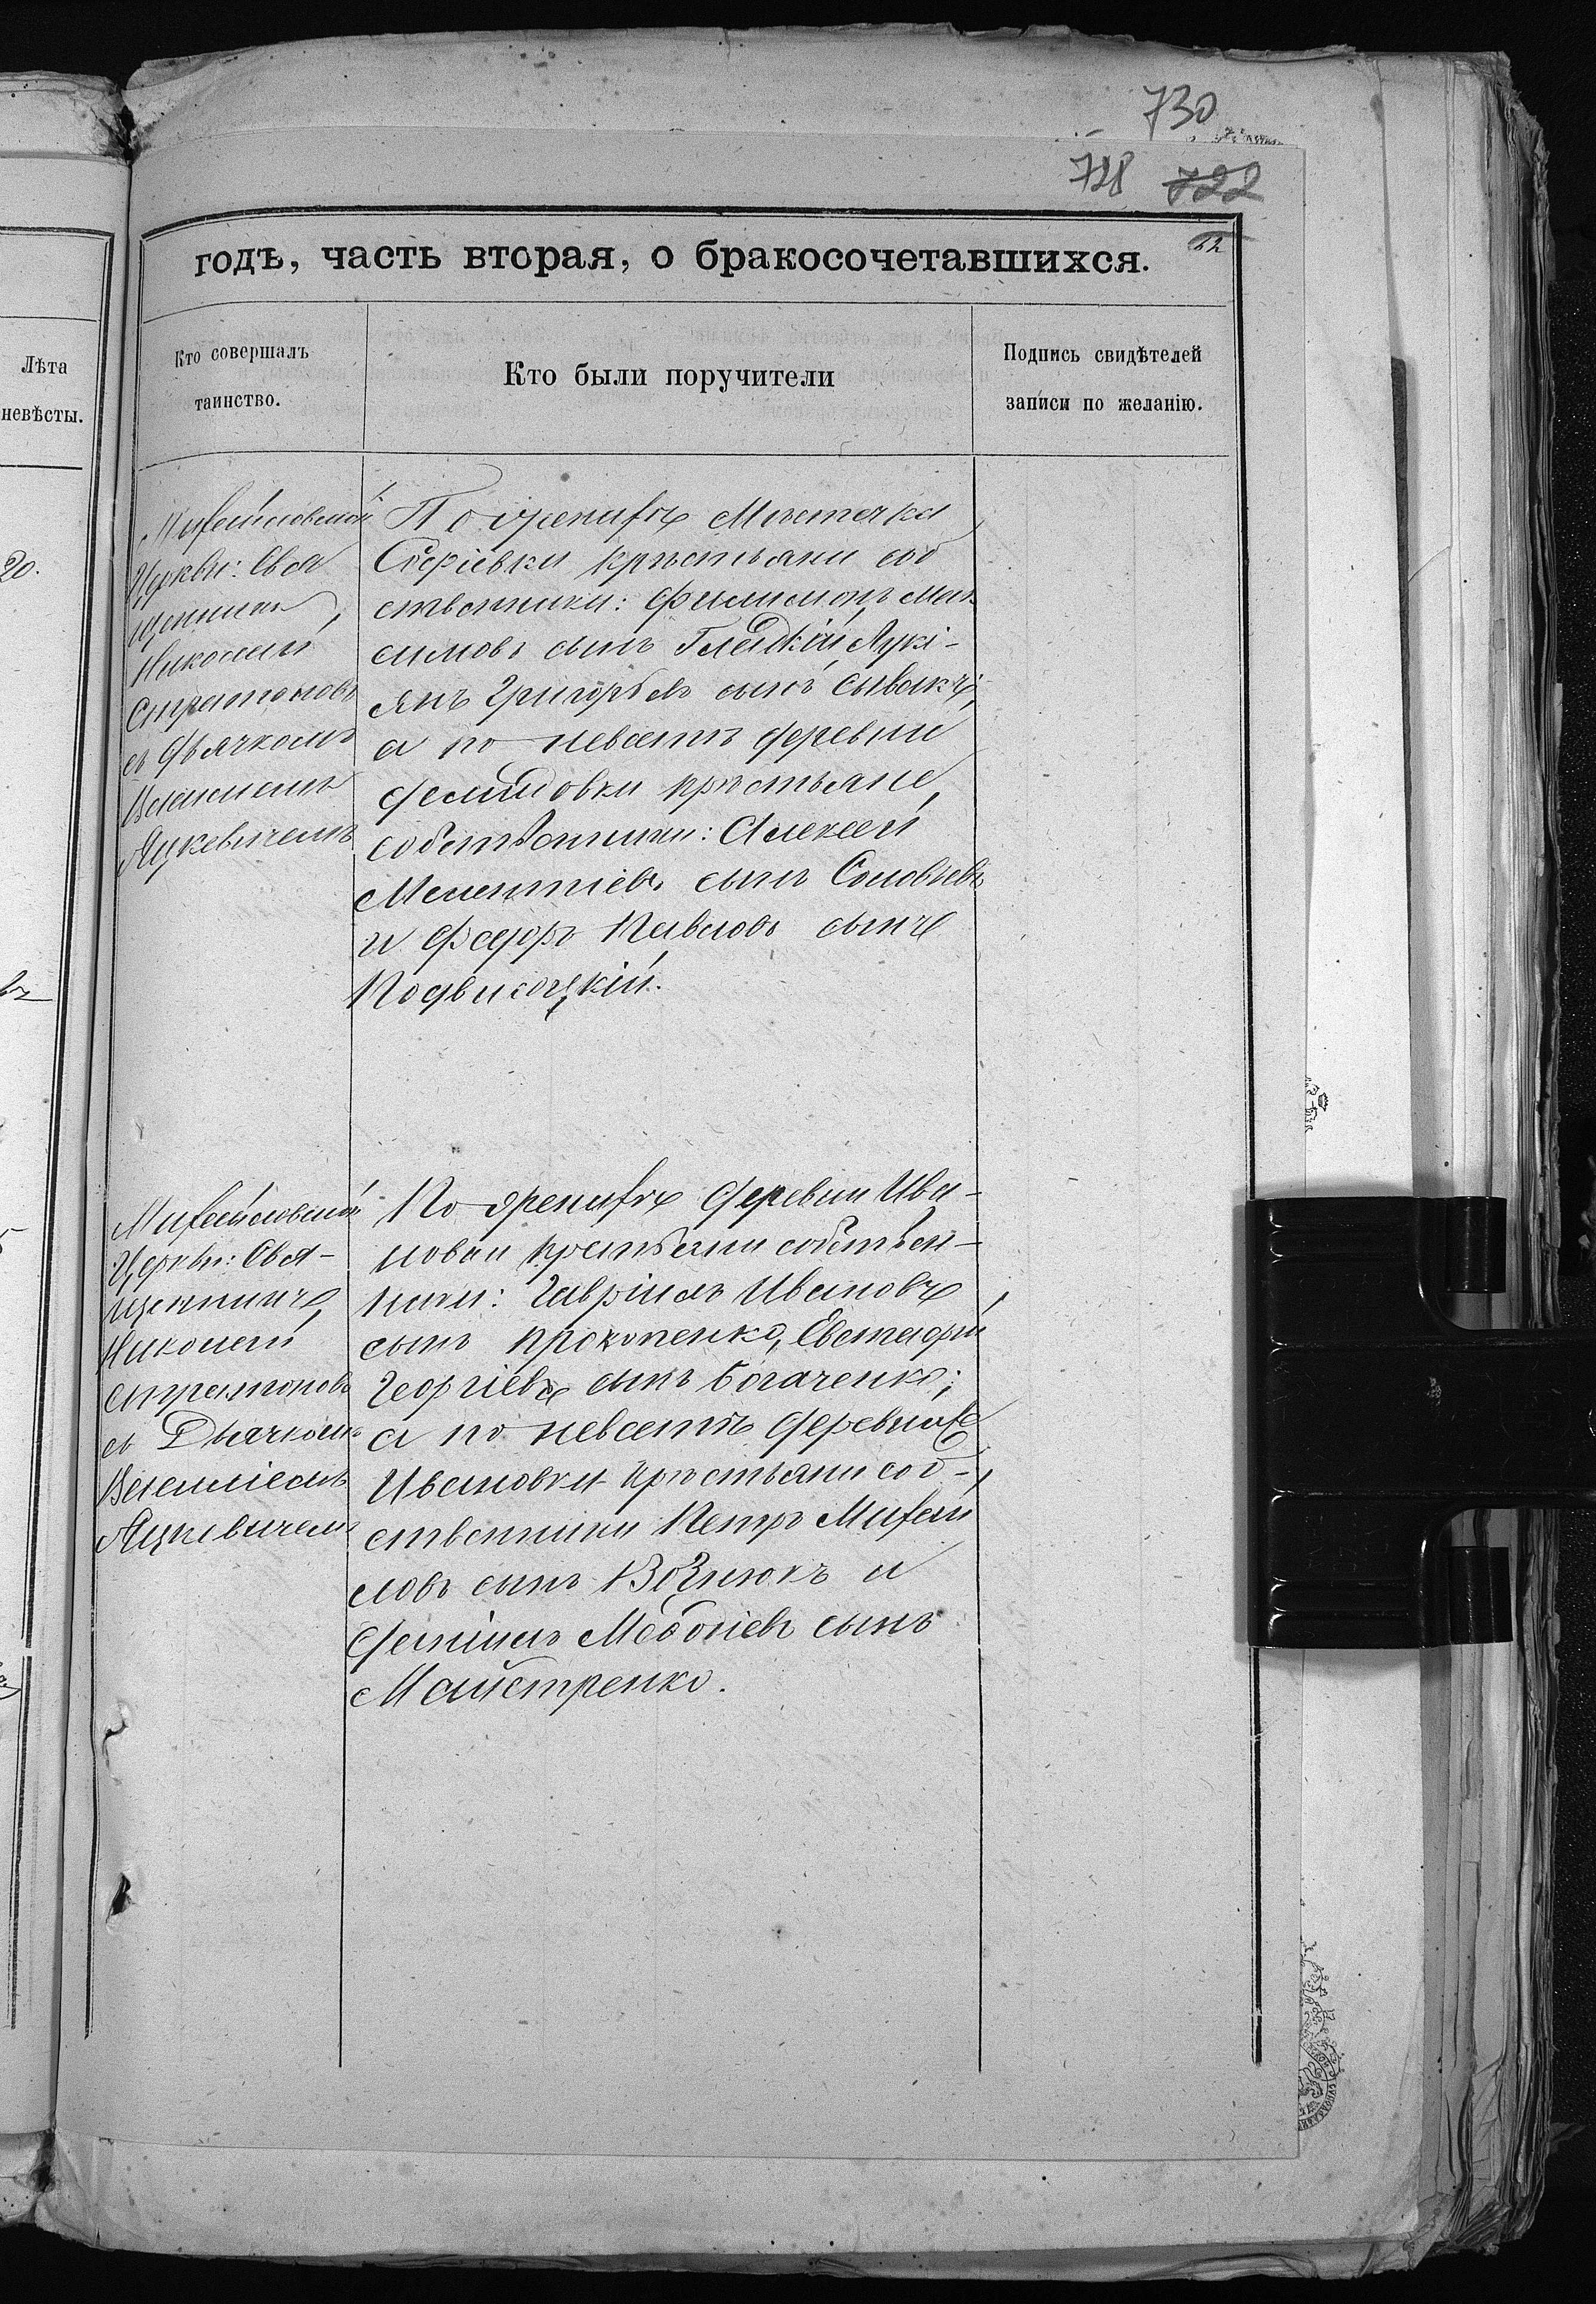 730
728 722
годъ, часть вторая, о бракосочетавшихся.
Лѣта
невѣсты.
Кто совершалъ
таинство.
Кто были поручители
Подпись свидѣтелей
записи по желанію.
20.
Михайловской
Церкви: Свя
щенникъ
Николай
Стратоновъ
съ Дьячкомъ
Василіемъ
Яцкевичемъ
По женихѣ Мѣстечка
Софіевки крѣстьяни соб
ственники: Филимонъ Мак
симовъ сынъ Гладкій, Лукі-
янъ Григорьевъ сынъ
а по невѣстѣ деревни
крѣстьяне
собственники: Алексѣй
Мелентіевъ сынъ Соловьевъ
и Федоръ Павловъ сынъ
Подвисоцкій.
Михайловской
Церкви: Свя-
щенникъ
Николай
Стратоновъ
съ Дьячкомъ
Василіемъ
Яцкевичемъ
По женихѣ деревни Ива-
новки крестьяни собствен-
ники: Гавріилъ Ивановъ
сынъ Прокопенко, Евстафій
Георгіевъ сынъ Богаченко;
а по невѣстѣ деревни
Ивановки крѣстьяни соб-
ственники Петръ Михай
ловъ сынъ Вознюкъ и
Даніилъ сынъ
Майстренко.